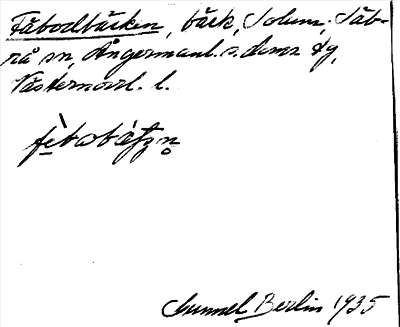 Fäbodbäcken, bäck, Solum, Säb-
rå sn, Ångermanl. s. doms dg,
Västernorrl. l.
fὲ̱bωbätʒn̥
Gunnel Berlin 1935